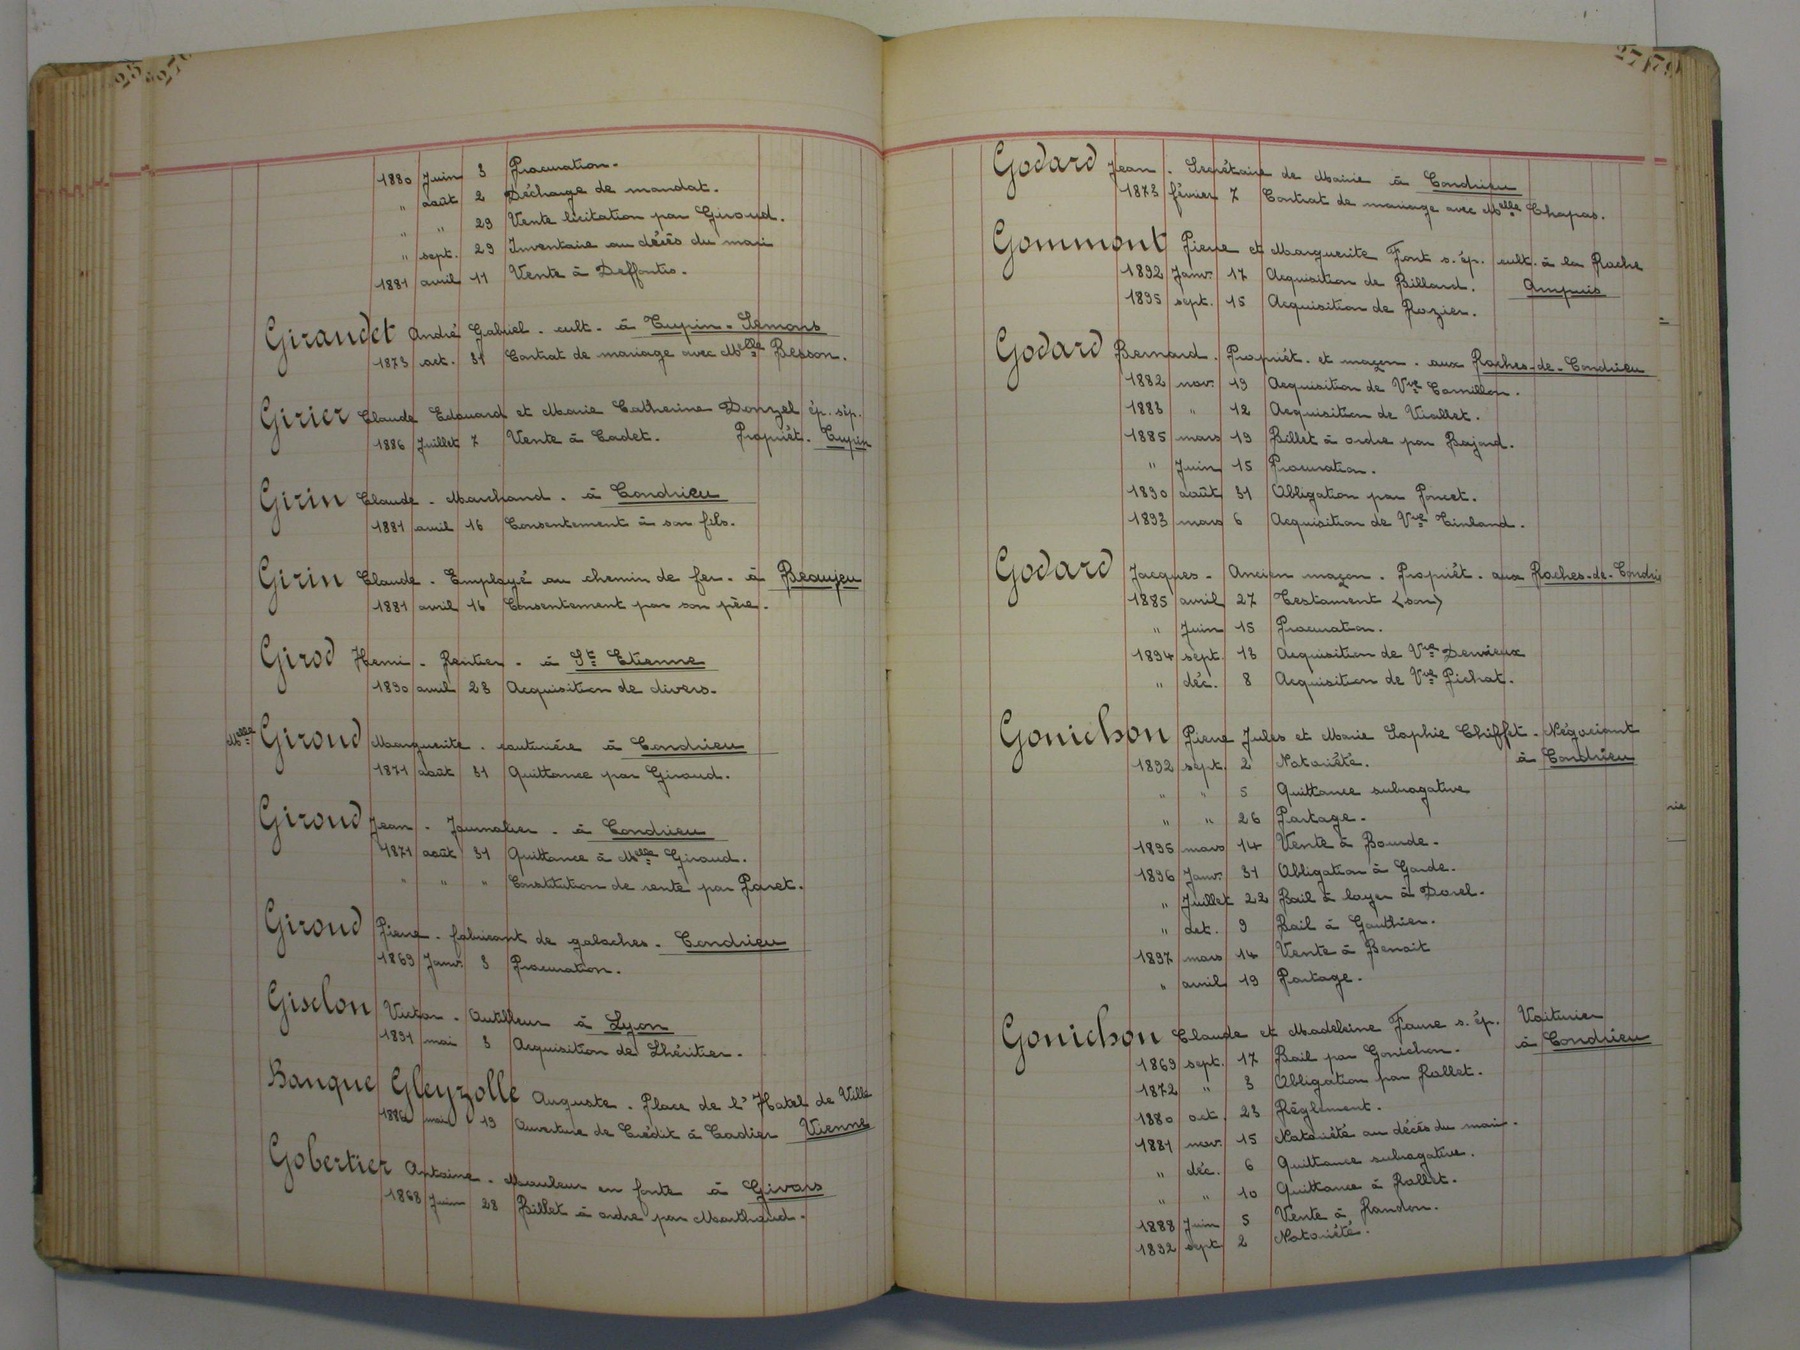 1880 Juin 3 Procuration.
" août 2 Décharge de mandat.
" " 29 Vente licitation par Giroud.
" sept. 29 Inventaire au décès du mari
1881 avril 11 Vente à Deffontis.
Giraudet André Gabriel - cult. à Tupin-Semons
1873 oct. 31 Contrat de mariage avec Melle Besson.
Girier Claude Edouard et Marie Catherine Donzel ép. sép.
1886 Juillet 7 Vente à Cadet. Propriét. Tupin
Girin Claude - Marchand - à Condrieu
1881 avril 16 Consentement à son fils.
Girin Claude - Employé au chemin de fer - à Beaujeu
1881 avril 16 Consentement par son père.
Girod Henri - Rentier - à St Etienne
1890 avril 23 Acquisition de divers.
Melle Giroud Marguerite - couturière à Condrieu
1871 août 31 Quittance par Giroud.
Giroud Jean - Journalier - à Condrieu
1871 août 31 Quittance à Melle Giroud.
" " " Constitution de rente par Paret.
Giroud Pierre - fabricant de galoches - Condrieu
1869 Janv. 3 Procuration.
Giselon Victor - Outilleur à Lyon
1891 mai 3 Acquisition de Lhéritier.
Banque Gleyzolle Auguste - Place de l'Hotel de Ville
mai 19 Ouverture de Crédit à Cadier Vienne
Gobertier Antoine - Mouleur en fonte à Givors
1868 Juin 28 Billet à ordre par Marthoud.
Godard Jean - Secrétaire de Mairie à Condrieu
1873 février 7 Contrat de mariage avec Melle Chapas.
Gommont Pierre et Marguerite Font s. ép. cult. à la Roche
1892 Janv. 17 Acquisition de Billard. Ampuis
1895 sept. 15 Acquisition de Rozier.
Godard Bernard. Propriét. et maçon. aux Roches-de-Condrieu
1882 nov. 19 Acquisition de Vve Camillon.
1883 " 12 Acquisition de Viallet.
1885 mars 19 Billet à ordre par Bajard.
" Juin 15 Procuration.
1890 août 31 Obligation par Poncet.
1893 mars 6 Acquisition de Vve Tinland.
Godard Jacques - Ancien maçon. Propriét. aux Roches-de-Condrieu
1885 avril 27 Testament (son)
" Juin 15 Procuration.
1894 sept. 18 Acquisition de Vve Dervieux
" déc. 8 Acquisition de Vve Pichat.
Gonichon Pierre Jules et Marie Sophie Chiffet - Négociant
1892 sept. 2 Notoriété. à Condrieu
" " 5 Quittance subrogative
" " 26 Partage.
1895 mars 14 Vente à Bourde.
1896 Janv. 31 Obligation à Garde.
" Juillet 22 Bail à loyer à Dorel.
" oct. 9 Bail à Gauthier.
1897 mars 14 Vente à Benoit
" avril 19 Partage.
Gonichon Claude et Madeleine Faure s. ép. Voiturier
1869 sept. 17 Bail par Gonichon. à Condrieu
1872 " 3 Obligation par Rollet.
1880 oct. 23 Réglement.
1881 nov. 15 Notoriété au décès du mari.
" déc. 6 Quittance subrogative.
" " 10 Quittance à Rollet.
1888 Juin 5 Vente à Randon.
1892 sept 2 Notoriété.